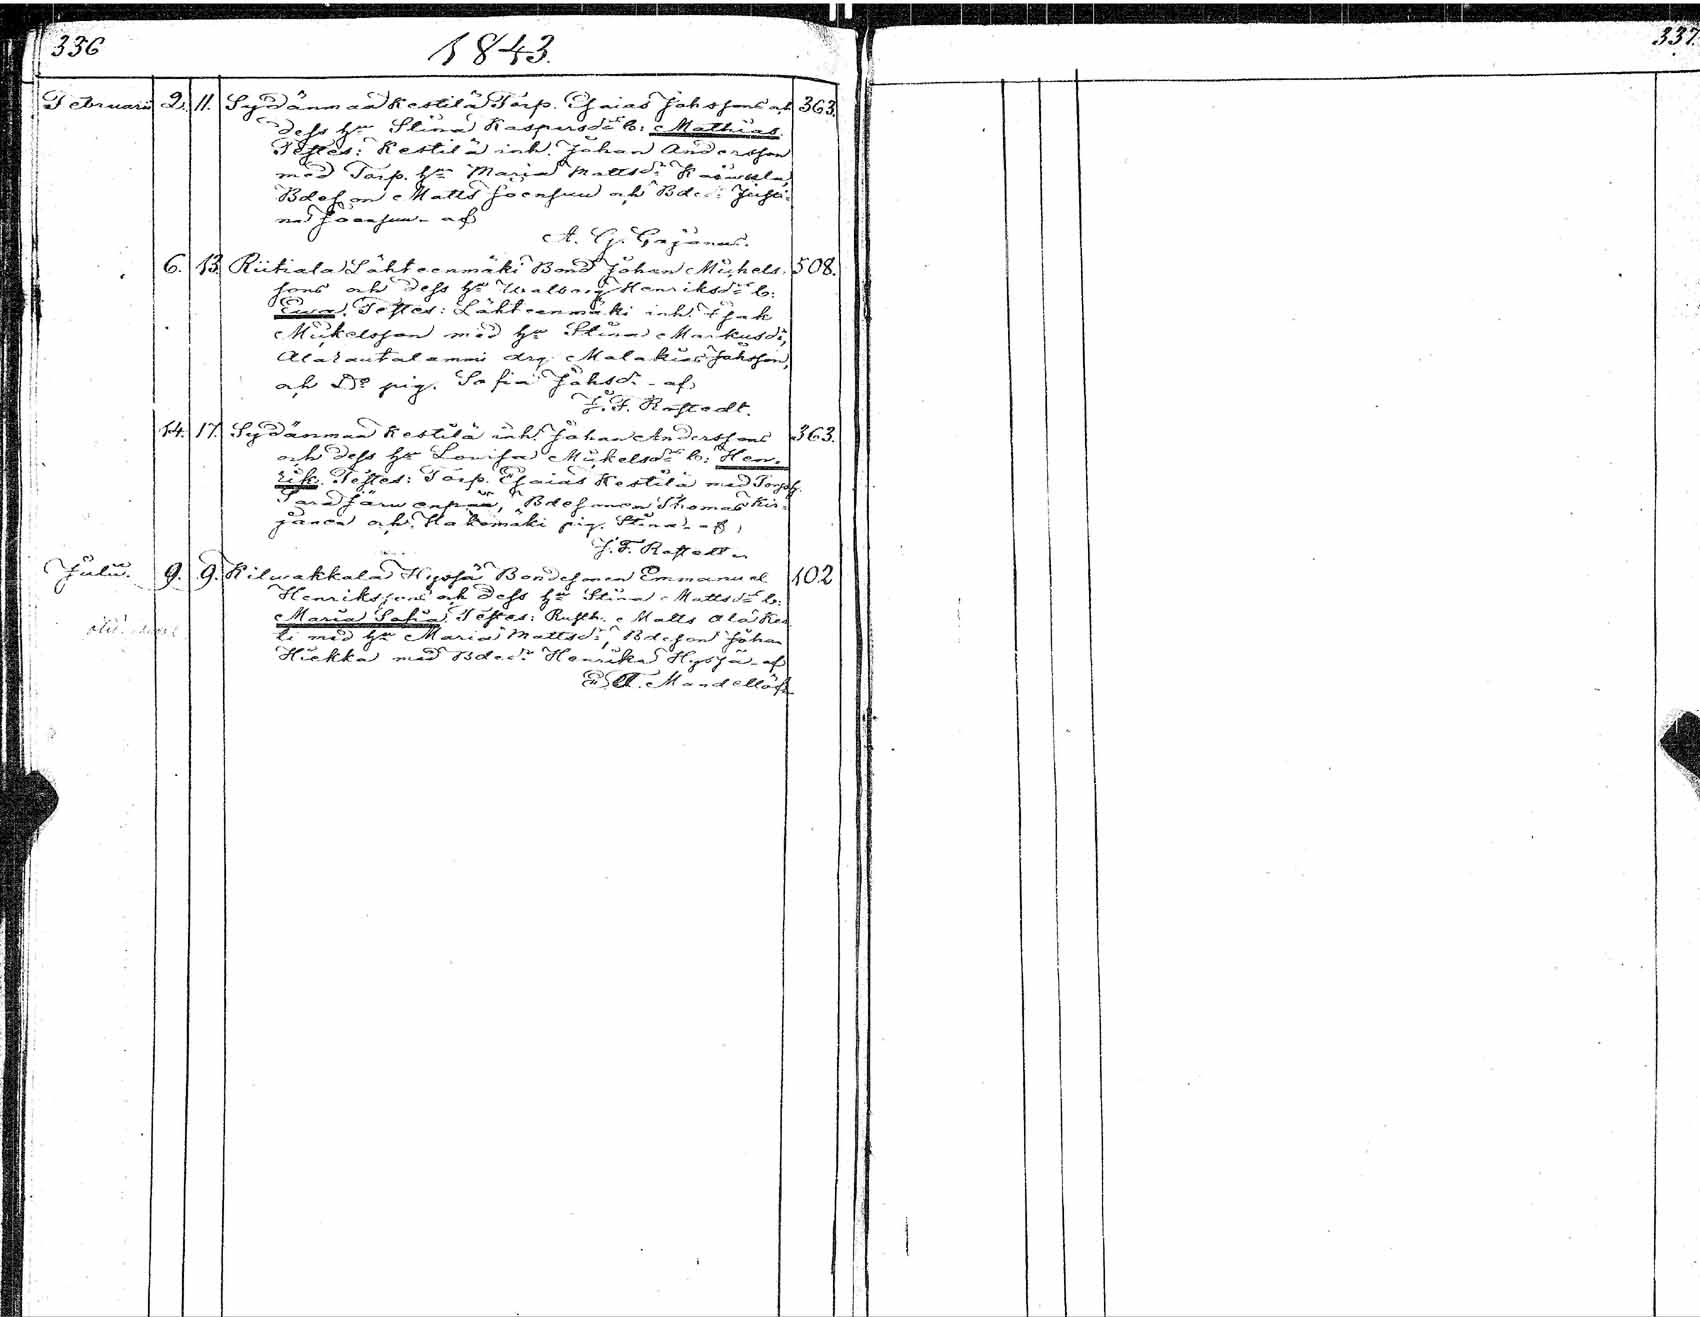 336
1843.
337.
Februarii 2. 11. Sydänmaa Kestilä Torp. Esaias Johssons och 363.
dess hu Stina Kaspersdr b: Mathias.
Testes: Kestilä inh. Johan Andersson
med Torp. hu Maria Mattsdr
Bdeson Matts Joensuu och Bdedr Justi-
na Joensuu - af
A. G.
6. 13. Riitiala Lähteenmäki Bond Johan Michels- 508.
sons och dess hu Walborg Henriksdr b:
Ewa. Testes: Lähteenmäki inh. Isak
Mickelsson med hu Stina Markusdr,
Alarautalammi drg. Malakias Johsson,
och Do pig. Sofia Johsdr - af
J. F. Rostedt.
14. 17. Sydänmaa Kestilä inh. Johan Anderssons 363.
och dess hu Lovisa Mickelsdr b: Hen-
rik. Testes: Torp. Esaias Kestilä med Torp. h.
Sara Järwenpää, Bdesonen Thomas
och Hakomäki pig. Stina - af
J. F. Rostedt
Julii. 9. 9. Kilwakkala Hyssä Bondesonen Emmanuel 102
Henrikssons och dess hu Stina Mattsdr b:
Maria Sofia. Testes: Rusth. Matts Ala Kes-
ti med hu Maria Mattsdr, Bdeson Johan
Hiekka med Bdedr Henrika Hyssä - af
Mandellöf